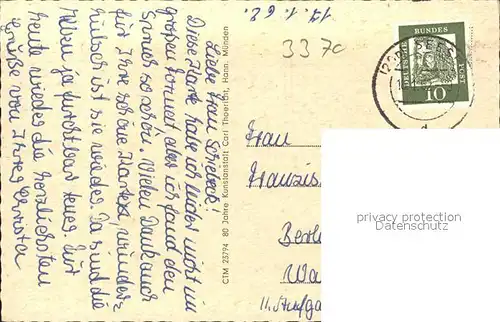 17. 1. 62.
3370
Liebe Frau Schiebeck!
Diese Karte habe ich leider nicht im
großen Format, aber ich fand den
Spruch so schön. Vielen Dank auch
für Ihre schöne Karte, wunder-
hübsch ist sie wieder. Da sind die
ja furchtbar teuer. Für
heute wieder die herzlichsten
Grüße von Ihrer Christa
CTM 25794 80 Jahre Kunstanstalt Carl Thoericht, Hann. Münden
DEUTSCHE BUNDES
10
Frau
Berl
Wa
II. Aufga
privacy protection
Datenschutz